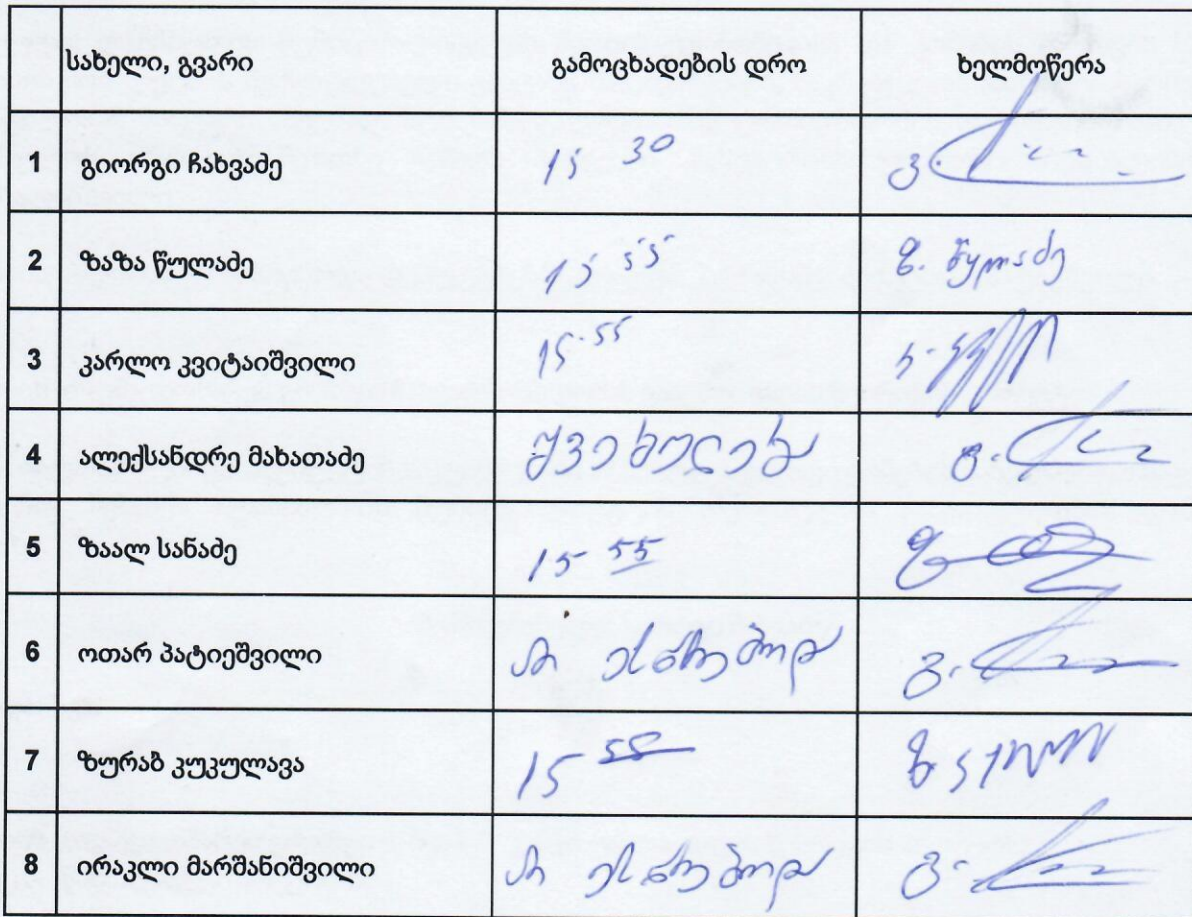 სახელი, გვარი გამოცხადების დრო ხელმოწერა
1 გიორგი ჩახვაძე 15 30
2 ზაზა წულაძე 15 55 ზ. წულაძე
3 კარლო კვიტაიშვილი 15 55
4 ალექსანდრე მახათაძე შვებულება
5 ზაალ სანაძე 15 55
6 ოთარ პატიეშვილი არ ესწრებოდა
7 ზურაბ კუკულავა 15
8 ირაკლი მარშანიშვილი არ ესწრებოდა